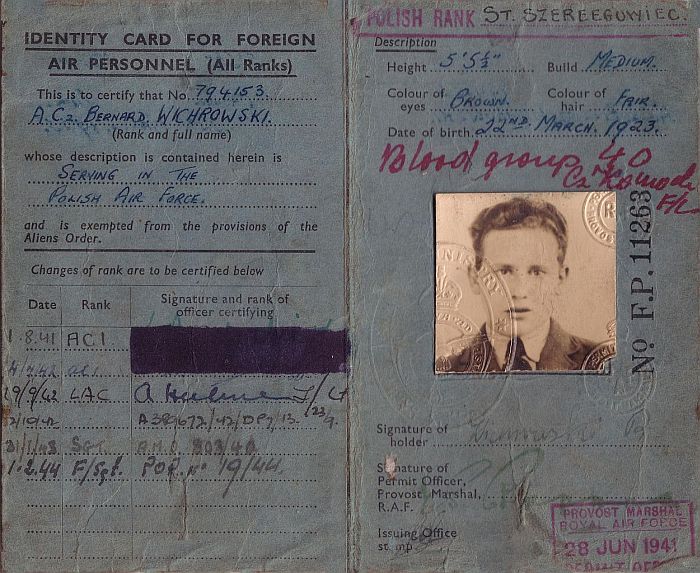 IDENTITY CARD FOR FOREIGN
AIR PERSONNEL (All Ranks)
This is to certify that No. 794153.
A.Cz. BERNARD WICHROWSKI.
(Rank and full name)
whose description is contained herein is
SERVING IN THE
POLISH AIR FORCE.
and is exempted from the provisions of the
Aliens Order.
Changes of rank are to be certified below
Date Rank Signature and rank of
officer certifying
1.8.41 A.C.1.
19/9/42 LAC
1.2.44 F/Sgt. P.O.R. No 19/44.
POLISH RANK ST. SZEREGOWIEC.
Description
Height 5'5½" Build MEDIUM.
Colour of Colour of
eyes BROWN. hair FAIR.
Date of birth 22ND MARCH. 1923.
Blood group 40
No F.P. 11263
Signature of
holder
Signature of
Permit Officer,
Provost Marshal,
R.A.F.
Issuing Office
stamp
PROVOST MARSHAL
ROYAL AIR FORCE
28 JUN 1941